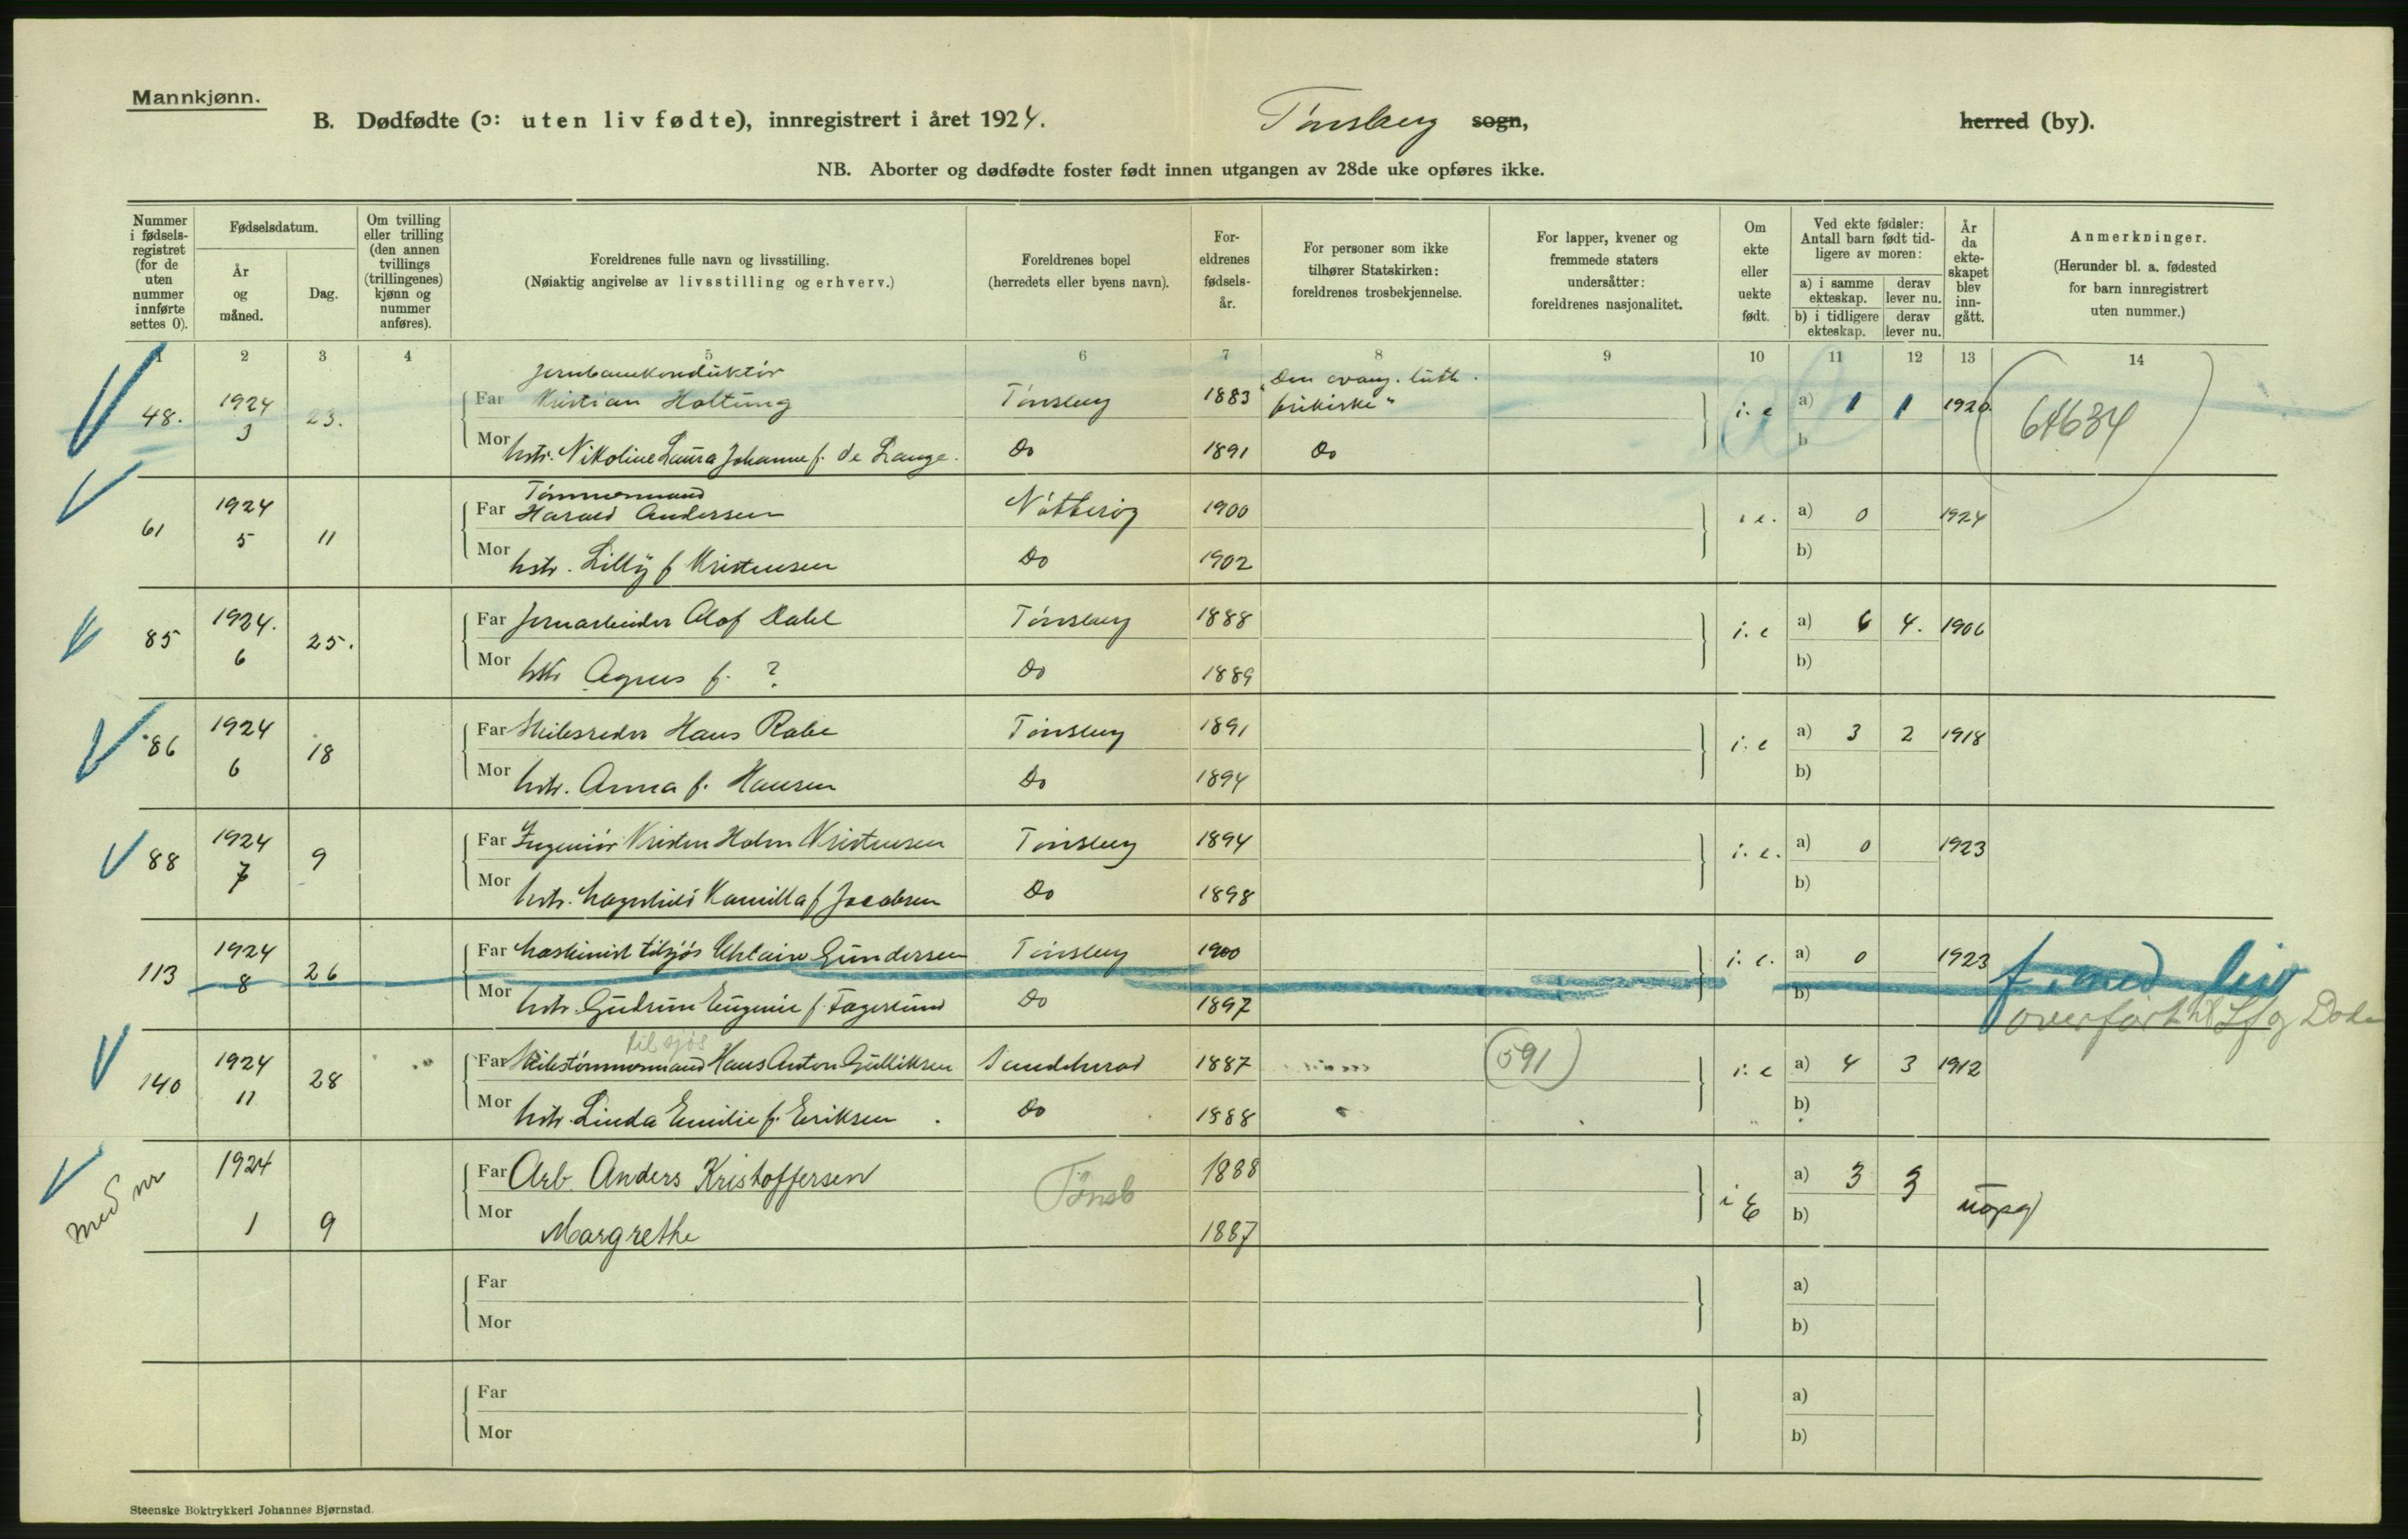 Mannkjønn.
B. Dødfødte (ɔ: uten liv fødte), innregistrert i året 1924. Tønsberg sogn, herred (by).
NB. Aborter og dødfødte foster født innen utgangen av 28de uke opføres ikke.
Nummer i fødselsregistret (for de uten nummer innførte settes 0).
Fødselsdatum.
År og måned.
Dag.
Om tvilling eller trilling (den annen tvillings (trillingenes) kjønn og nummer anføres).
Foreldrenes fulle navn og livsstilling.
(Nøiaktig angivelse av livsstilling og erhverv.)
Foreldrenes bopel
(herredets eller byens navn).
Foreldrenes fødselsår.
For personer som ikke tilhører Statskirken: foreldrenes trosbekjennelse.
For lapper, kvener og fremmede staters undersåtter: foreldrenes nasjonalitet.
Om ekte eller uekte født.
Ved ekte fødsler: Antall barn født tidligere av moren:
a) i samme ekteskap. derav lever nu.
b) i tidligere ekteskap. derav lever nu.
År da ekteskapet blev inngått.
Anmerkninger.
(Herunder bl. a. fødested for barn innregistrert uten nummer.)
1 2 3 4 5 6 7 8 9 10 11 12 13 14
Jernbanekonduktør
48. 1924 3 23. Far Kristian Holtung Tønsberg 1883 "Den evang. luth. frikirke" i. e a) 1 1 1920 64634
Mor hstr. Nikoline Laura Johanne f. de Lange. Do 1891 Do b
Tømmermand
61 1924 5 11 Far Harald Andersen Nøtterøy 1900 i e. a) 0 1924
Mor hstr. Lilly f Kristensen Do 1902 b)
85 1924. 6 25. Far Jernarbeider Olof Dahl Tønsberg 1888 i. e a) 6 4. 1906
Mor hstr Agnes f. ? Do 1889 b)
86 1924 6 18 Far Skibsreder Hans Rabe Tønsberg 1891 i. e a) 3 2 1918
Mor hstr. Anna f. Hansen Do 1894 b)
88 1924 7 9 Far Ingeniør Kristen Holm Kristensen Tønsberg 1894 i. e. a) 0 1923
Mor hstr. Magnhild Kamilla f Jacobsen Do 1898 b)
113 1924 8 26 Far Maskinist tilsjøs Gundersen Tønsberg 1900 i. e. a) 0 1923 f. med liv
Mor hstr. Gudrun Eugenie f. Fagerlund Do 1897 b) overført til Lf og Døde
til sjøs
140 1924 11 28 Far Skibstømmermand Hans Anton Gulliksen Sandeherad 1887 (591) i. e a) 4 3 1912
Mor hstr. Linda Emilie f. Eriksen. Do 1888 b)
med nr 1924 1 9 Far Arb. Anders Kristoffersen Tønsb 1888 i E a) 3 3 uopg
Mor Margrethe 1887 b)
Far a)
Mor b)
Far a)
Mor b)
Steenske Boktrykkeri Johannes Bjørnstad.